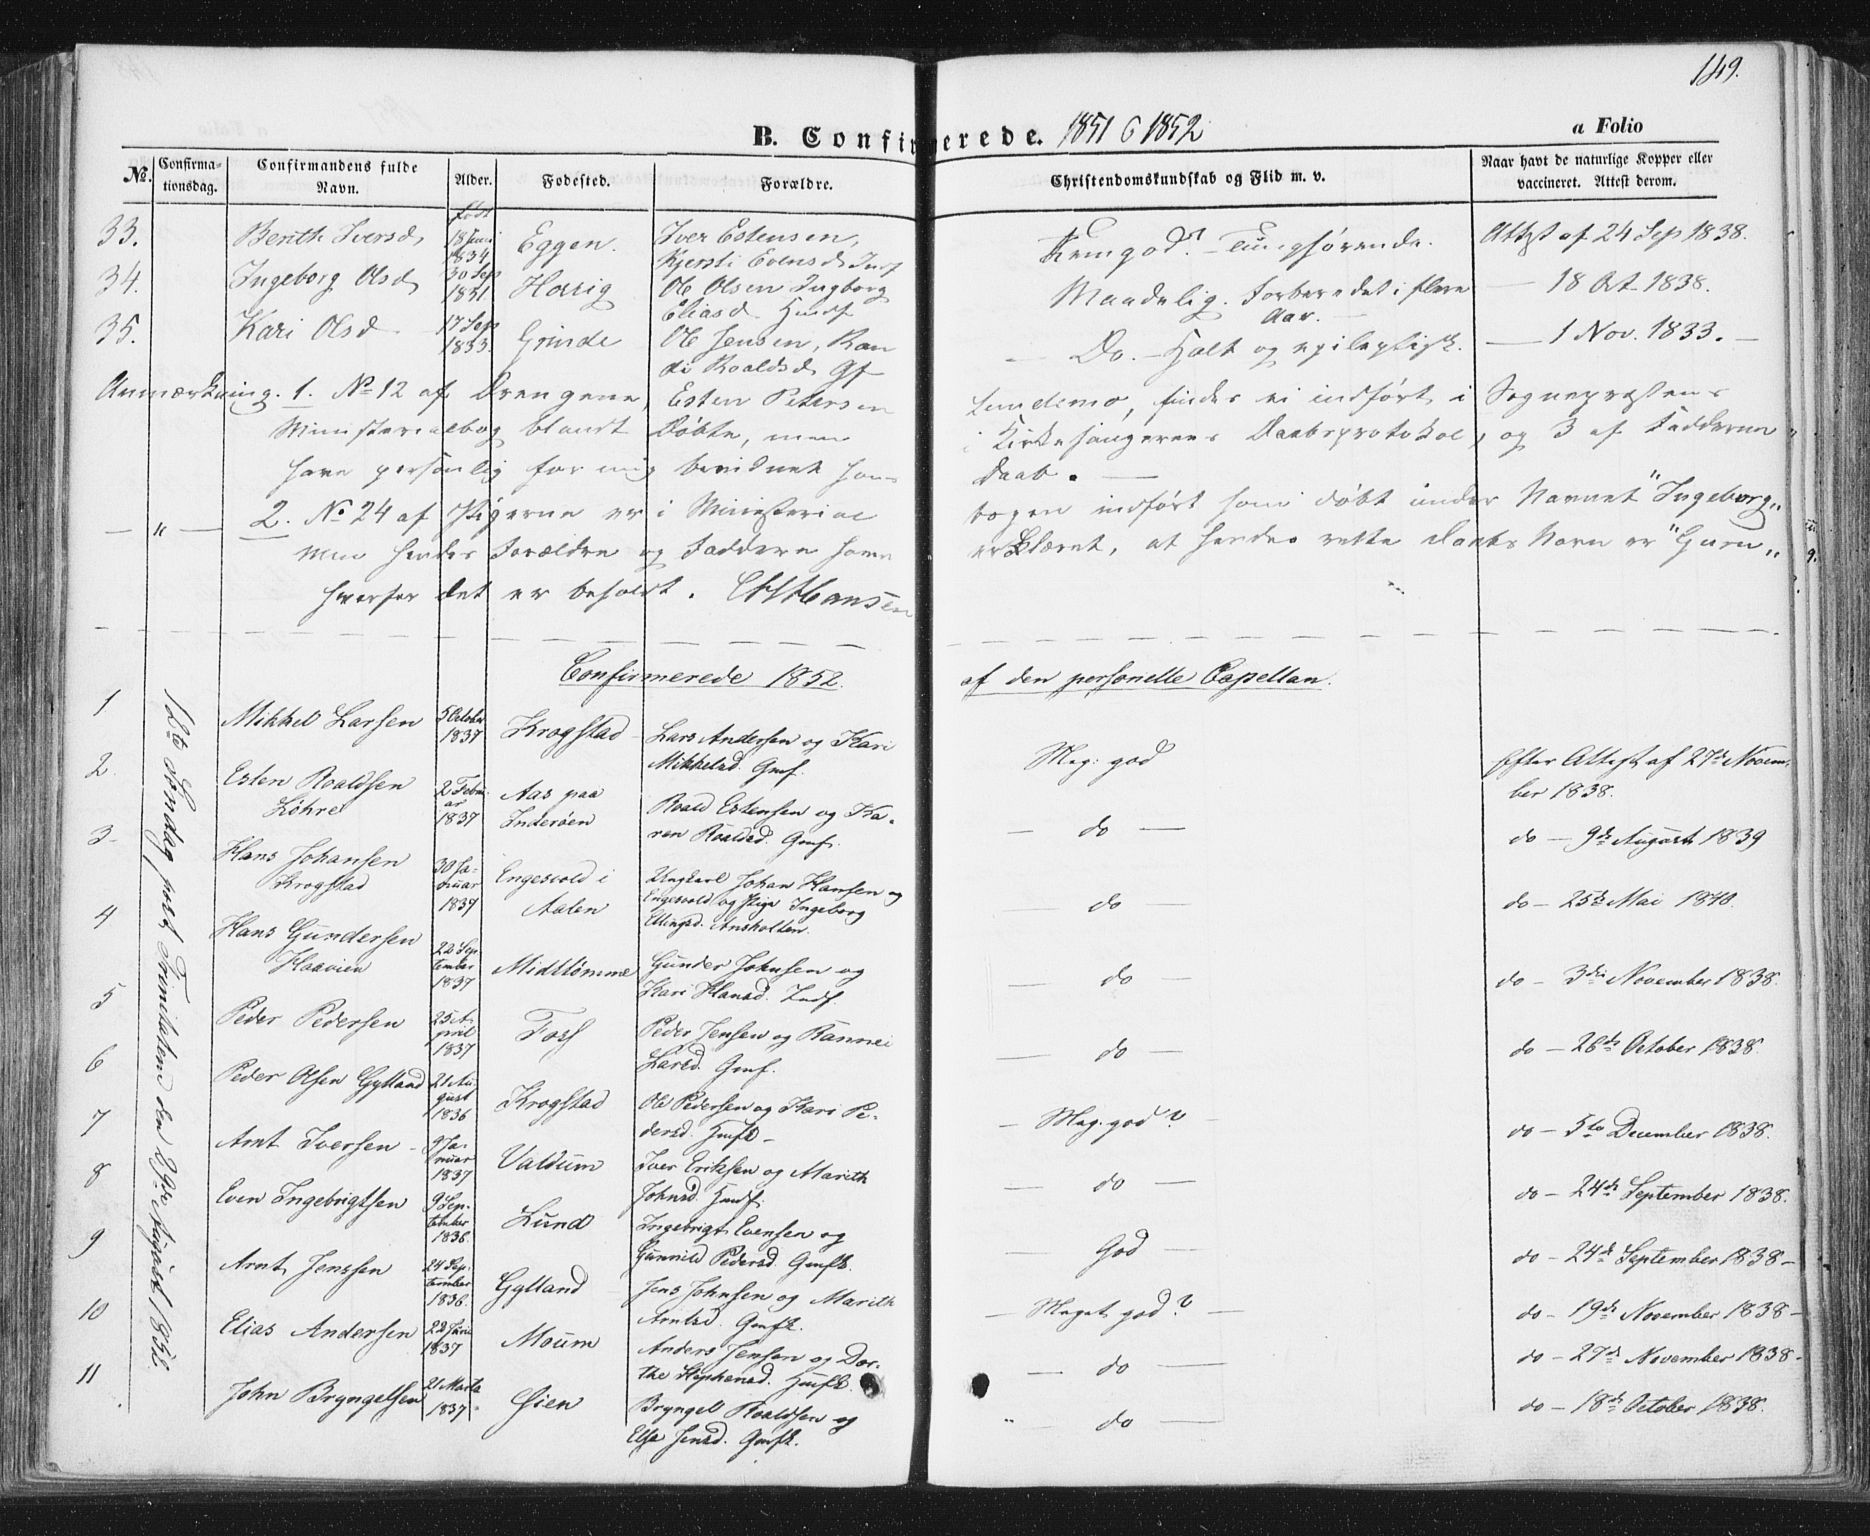 149.
B. Confirmerede. 1851 & 1852
a Folio
No. Confirma-tionsdag. Confirmandens fulde Navn. Alder. Fødested. Forældre. Christendomskundskab og Flid m. v. Naar havt de naturlige Kopper eller vaccineret. Attest derom.
født
33. Berith Iversd. 18 Juni 1834 Eggen. Iver Estensen, Kjersti Evensd. Temgod? - Tungførende. Attest af 24 Sep 1838.
34. Ingeborg Olsd. 30 Sep 1831 Ole Olsen Ingborg Eliasd. Maadelig. Forberedet i flere Aar. — 18 Oct 1838.
35. Kari Olsd. 17 Sep 1833. Grinde Ole Jensen, Randi Roaldsd. — Do. — Halt og epileptisk. — 1 Nov. 1833. —
Anmærkning. 1. No 12 af Drengene, Esten Petersen Lundemo, findes ei indført i Sognepræstens
Ministerialbog blandt Døbte, men i Kirkesangerens Daabsprotokol, og 3 af Fadderne
have personlig for mig bevidnet hans Daab. —
— " — 2. No 24 af Pigerne er i Ministerial bogen indført som døbt under Navnet "Ingeborg"
men hendes Forældre og Faddere have erklæret, at hendes rette Daabs Navn er "Guru",
hvorfor det er beholdt. Hansen
Confirmerede 1852. af den personelle Capellan.
12te Søndag post Trinitatem den August 1852.
1 Mikkel Larsen 5 October 1837 Krogstad Lars Andersen og Kari Mikkelsd. Gmf. Meg: god Efter Attest af 27de November 1838.
2. Esten Roaldsen Løhre 2 Februar 1837 Aas paa Inderøen Roald Estensen og Karen Roaldsd. Gmf. — do — do — 9de August 1839
3. Hans Johansen Krogstad 30 Januar 1837 Engesvold i Aalen Ungkarl Johan Hansen og Engesvold og Pige Ingeborg Ellingsd. Ansholten. — do — do — 25de Mai 1840.
4 Hans Gundersen Haavien 22 September 1837 Midttømme Gunder Johnsen og Kari Hansd. Indf. — do — do — 3die November 1838.
5 Peder Pedersen 25 April 1837 Foss Peder Jensen og Rannei Larsd. Gmf. — do — do — 26de October 1838.
6 Peder Olsen Gylland 21 August 1836 Krogstad Ole Pedersen og Kari Pedersd. Hmfk — — Meg. god? — do — 5te December 1838.
7 Arnt Iversen 9 Januar 1837 Valdum Iver Eriksen og Marith Johnsd. Hmdf. — do — do — 24de September 1838.
8 Even Ingebrigtsen 9 September 1836. Lund Ingebrigt Evensen og Gunnild Pedersd. Gmfk. — God — do — 24de September 1838 —
9 Arnt Jenssen 24 September 1836. Gylland Jens Johnsen og Marith Arntsd. Gmfk. — Meget god? — do — 19de November 1838 —
10 Elias Andersen 22 Juni 1837 Moum Anders Jensen og Dorthe Stephensd. Hmfk. — do — do — 27de November 1838 —
11 John Bryngelsen 21 Marts 1837 Øien Bryngel Roaldsen og Else Jensd. Gmfk. " do — do — 18de October 1838.